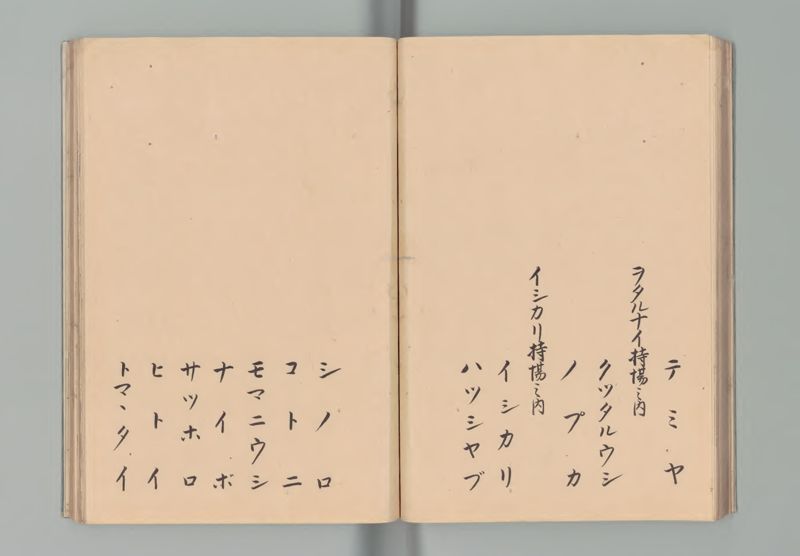 テミヤ
ヲタルナイ持場之内
クツタルウシ
ノプカ
イシカリ持場之内
イシカリ
ハツシヤブ
シノロ
コトニ
モマニウシ
ナイボ
サツホロ
ヒトイ
トマヽタイ